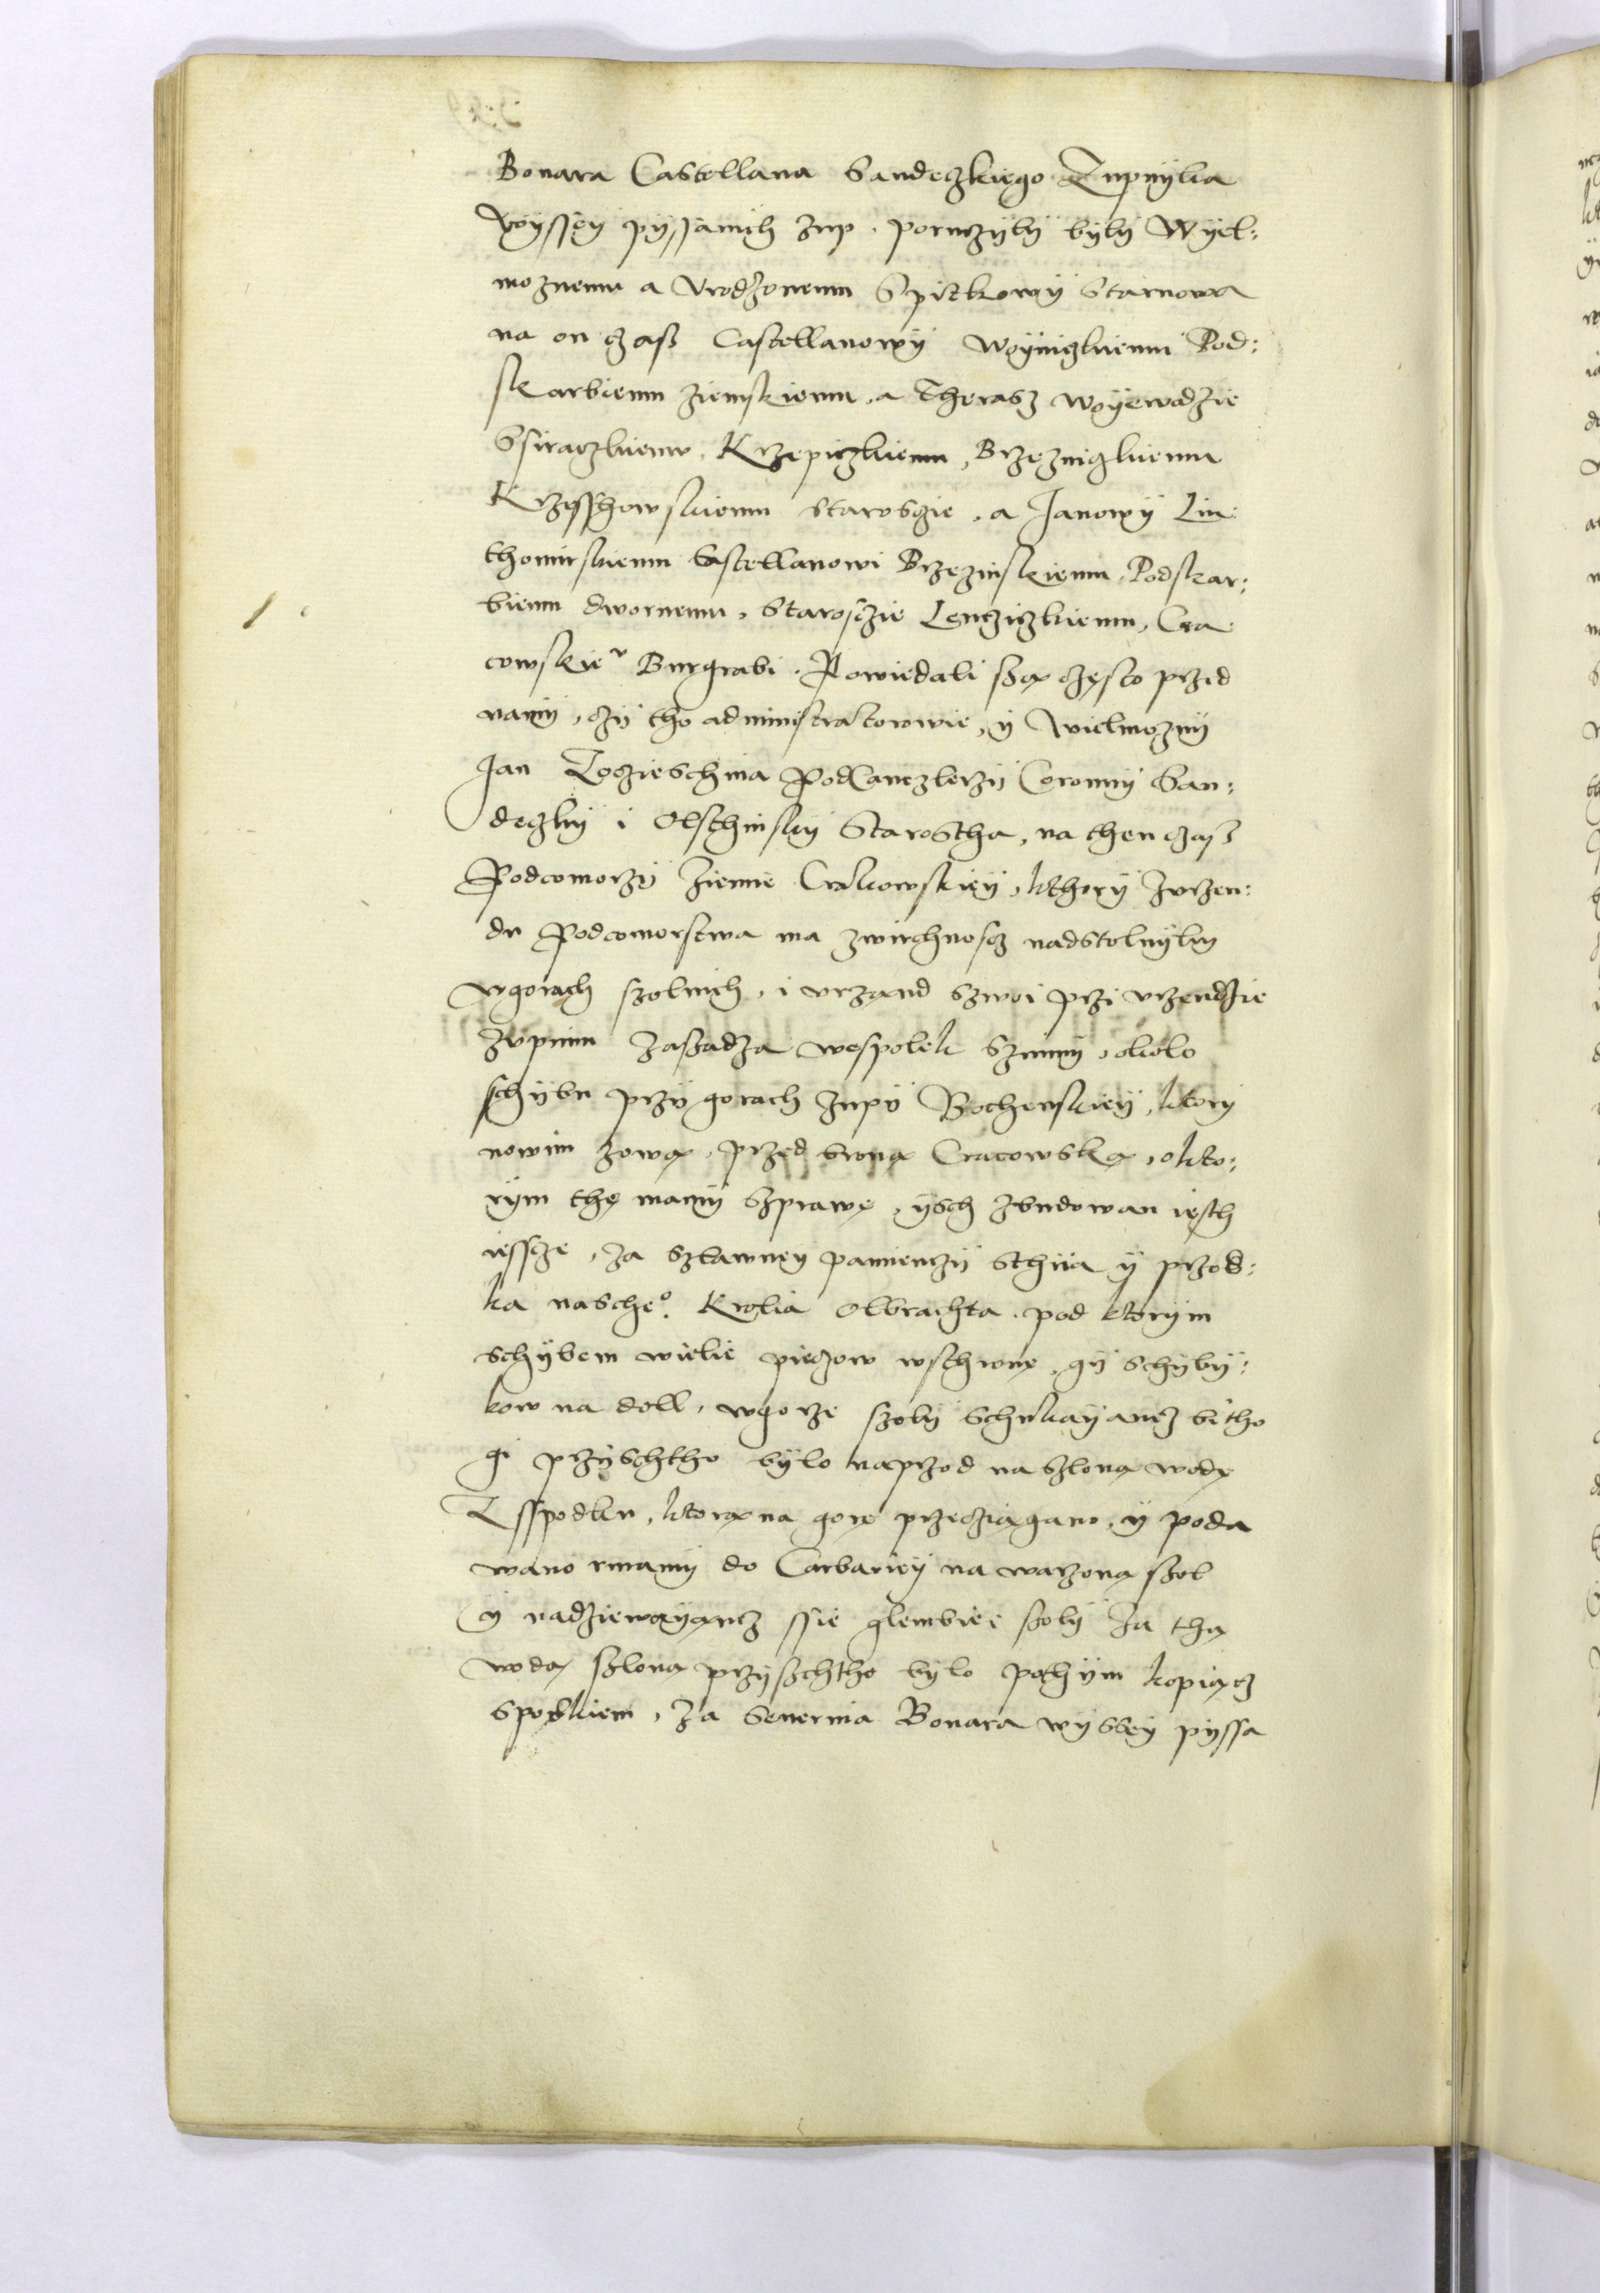 Bonara Castellana Sandeczkiego Zupnyka
Wyssey pyssanich zup, poruczyly byly Wyel:
moznemu a Urodzonemu Spitkowy Starnowa
na on czasz Castellanowy Woyniczkiemu Pod:
skarbiemu ziemskiemu, a Therasz woyewodzie
Ssiraczkiemu, Krzepiczkiemu, Brzezniczkiemu
Krzysschowskiemu starosczie, a Janowy Lu
thomirskiemu Castellanowi Brzezinskiemu, Podskar:
biemu dwornemu, Starosczie Lencziczkiemu, Cra
cowskie Burgrabi. Powiedali szą często przed
namy, czy tho administratorowie, y Wielmozny
Jan Oczieschina Podkanczlerzy Coronny San:
deczky i Olschinsky Starostha, na then czasz
Podcomorzy Ziemie Crakowskiey, kthory zurzen:
du Podcomorstwa ma zwirchnoscz nadstolnyky
wgorach szolnich, i urzand szwoi przi urzendzie
zupnim zaszadza wespolek sznimy, okolo
schybu przy gorach zupy Bochenskiey, ktory
nowim zową, przed broną Cracowską, o kto:
rym thę mamy szprawę, ysch zbudowan iesth
iessze, za szlawney pamienczy Sthria y przod:
ka nasche° Krolia Olbrachta, pod ktorym
schybem wielie pieczow wschronę, gy schyby:
kow na doll, wgorze szoly schukayancz bitho
gi przyschtho bylo naprzod na szloną wodę
Zsspodku, ktorą na gorę przecziągano, y poda
wano rinamy do Carbariey na warzoną szol
y nadziewayancz ssie glembiei szoly za thą
wodą szloną przyszchtho bylo pothym kopiącz
spodkiem, za Seuerina Bonara wyssey pyssa